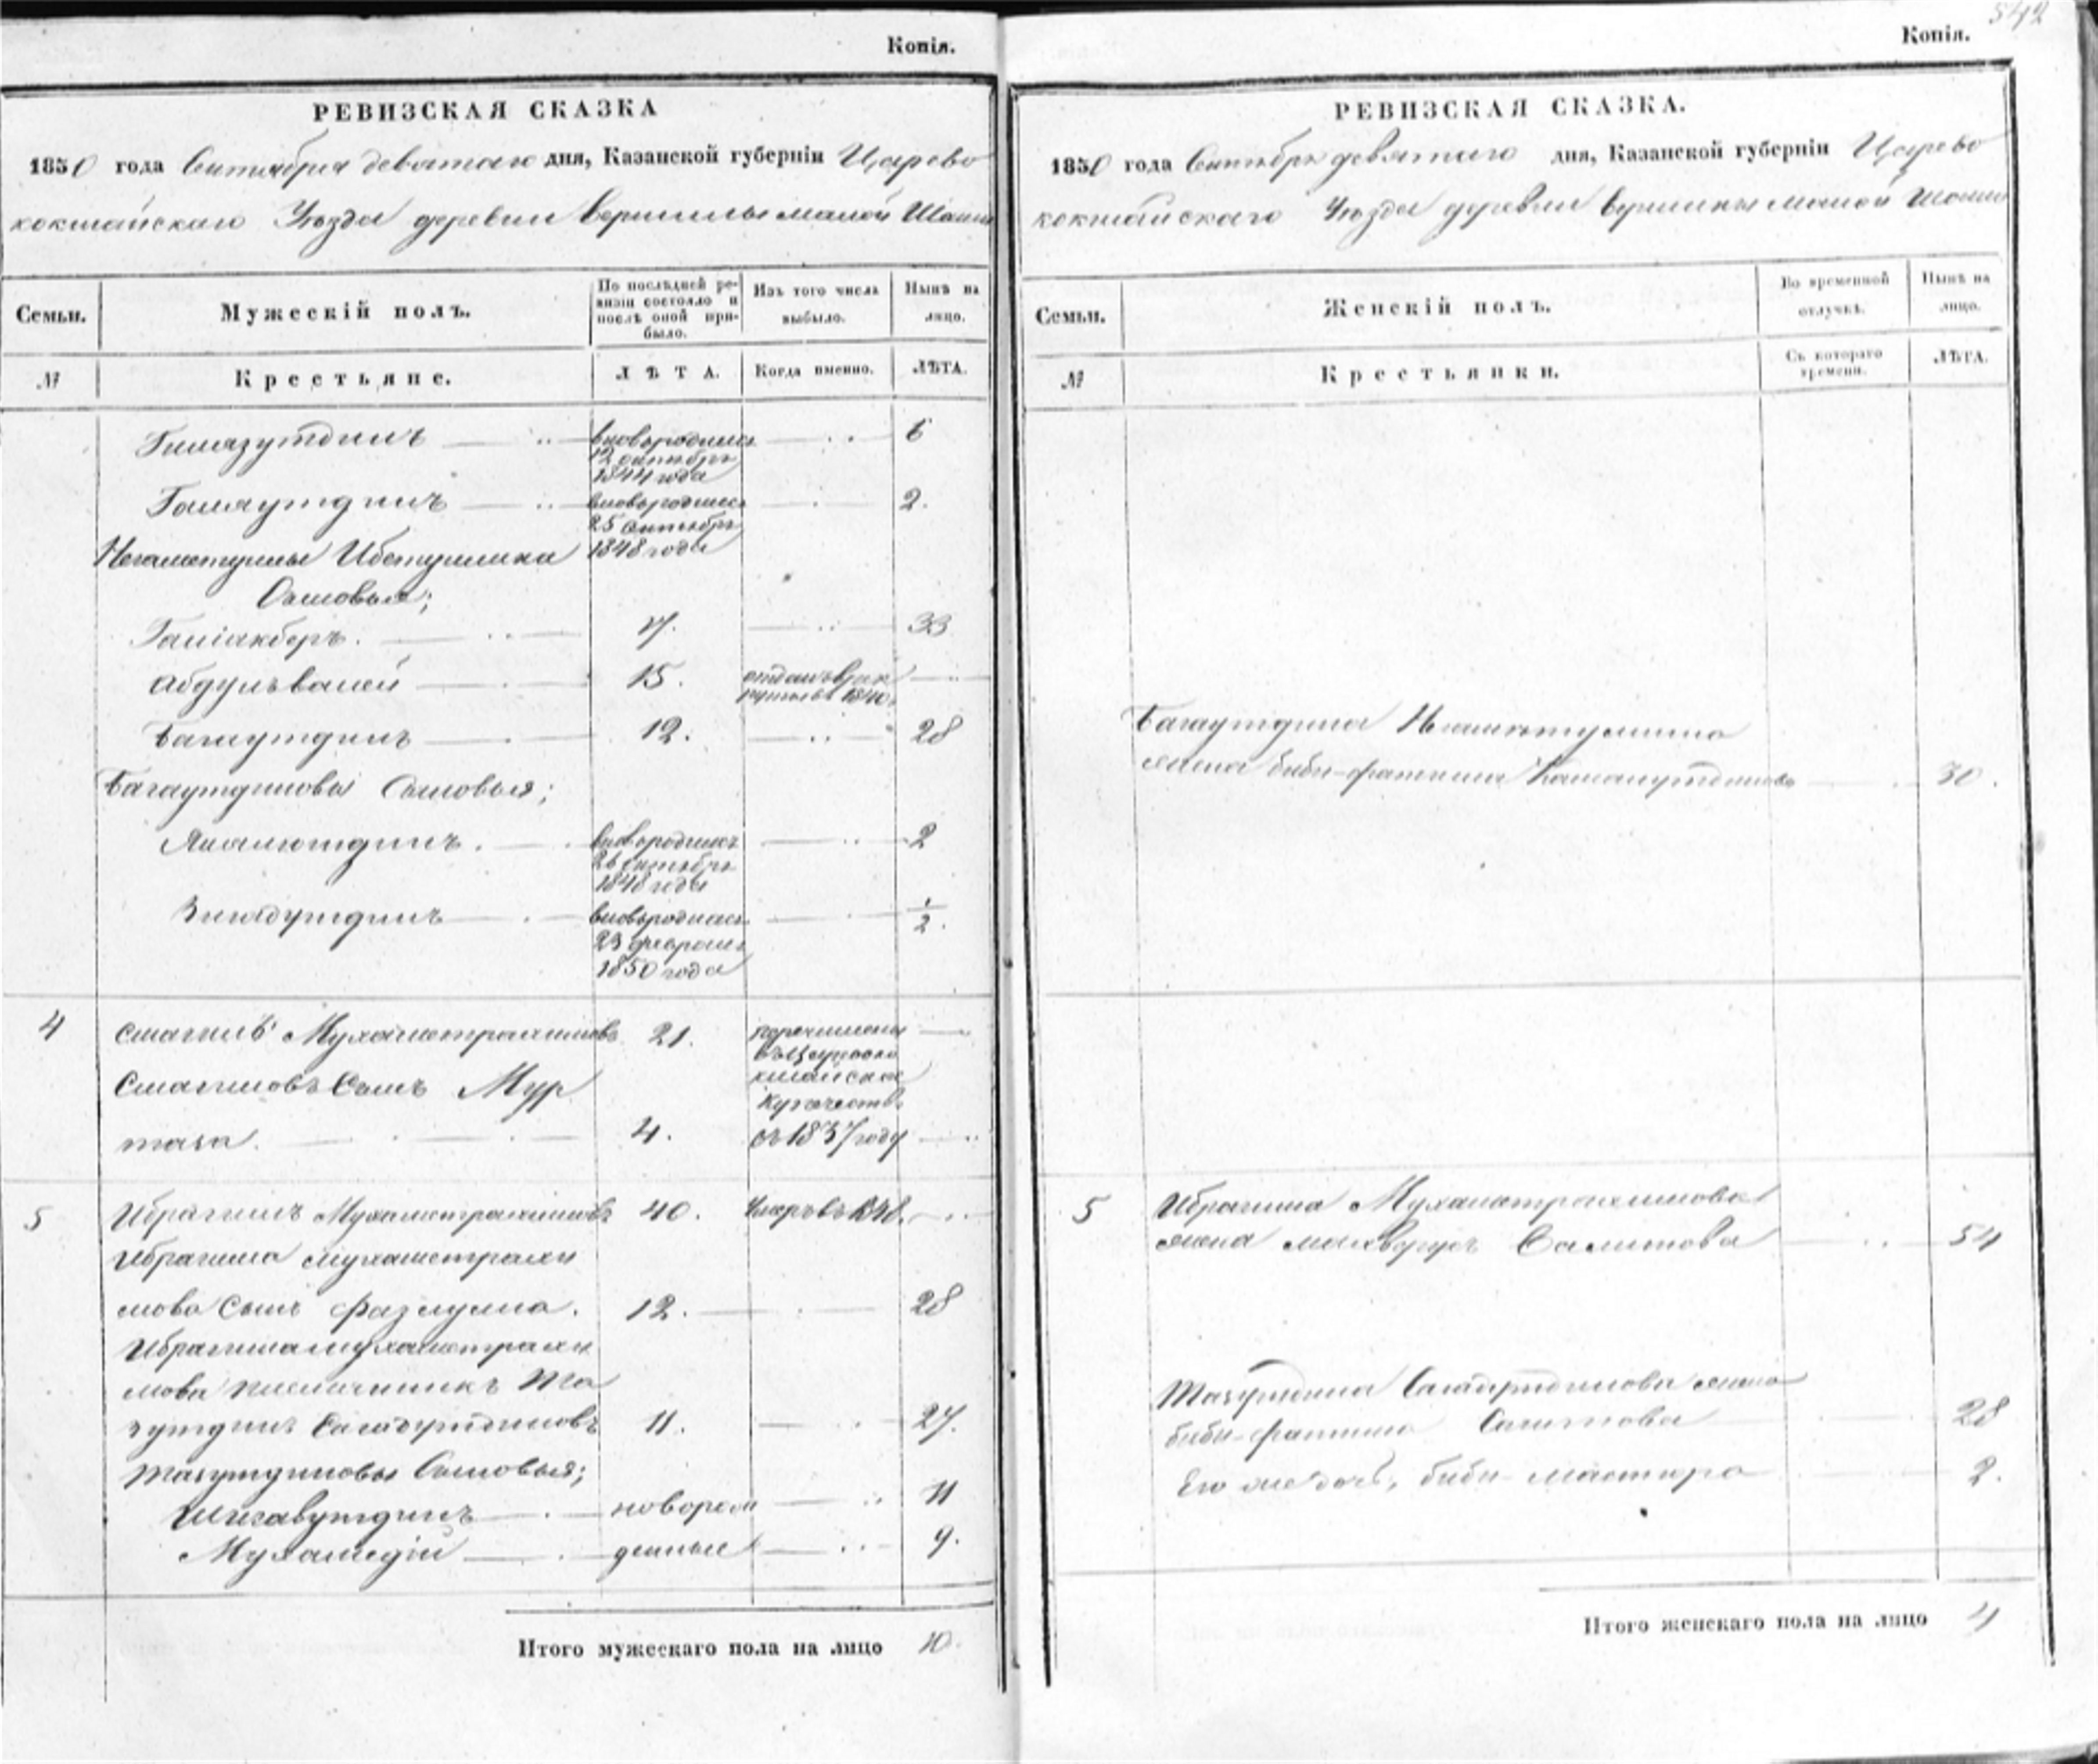 542
Копія.
РЕВИЗСКАЯ СКАЗКА
1850 года Сентября девятаго дня, Казанской губерніи Царево
кокшайскаго Уѣзда деревни Вершины малой Шаши
Семьи.
Мужескій полъ.
По послѣдней ре-
визіи состояло и
послѣ оной при-
было.
Изъ того числа
выбыло.
Нынѣ на
лицо.
№
Крестьяне.
ЛѢТА.
Когда именно.
ЛѢТА.
Гимазутдинъ вновородился 6
12 октября
1844 года
вновородился 2.
25 Сентября
1848 года
Сыновья;
Галіакберъ. 17. 33
Абдулъвалей 15. отданъ в рек
руты въ 1840.
Багаутдинъ 12. 28
Багаутдиновы Сыновья;
вновородился 2
26 октября
1848 года
вновородился 1/2.
23 февраля
1850 года
4 Смагилъ Мухаметрахимовъ 21. перечисленъ
въ Царевоко
кшайское
Смагиловъ Сынъ Мур
купечество
таза. 4. съ 1837 году
5 Ибрагимъ Мухаметрахимовъ 40. Умеръ въ 1848.
Ибрагима Мухаметрахи
мова Сынъ Фазлулла. 12. 28
Ибрагима Мухаметрахи
мова племянникъ Та
зутдинъ Сагадутдиновъ 11. 27.
Тазутдиновы Сыновья;
Шигавутдинъ новорож 11
Мухамедій денные 9.
Итого мужескаго пола на лицо 10.
Копія.
РЕВИЗСКАЯ СКАЗКА.
1850 года Сентября девятаго дня, Казанской губерніи Царево
кокшайскаго Уѣзда деревни Вершины малой Шаши
Семьи.
Женскій полъ.
Во временной
отлучкѣ.
Нынѣ на
лицо.
№
Крестьянки.
Съ котораго
времени.
ЛѢТА.
Багаутдина Нигаметуллина
жена Биби-фатима Камалутдинова 30.
5 Ибрагима Мухаметрахимова
жена Салитова 54
Тазутдина Сагадутдинова жена
Биби-фатима Сагитова 28
Его же дочь, Биби 2.
Итого женскаго пола на лицо 4